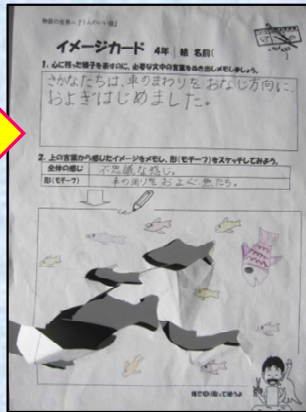 物語の世界へ『うんのいい猟』
イメージカード 4年 組 名前(
1、心に残った様子を表すのに、必要な文中の言葉をぬき出しメモしましょう。
さかなたちは、車のまわりを おなじ方向に、
およぎはじめました。
2、上の言葉から感じたイメージをメモし、形(モチーフ)をスケッチしてみよう。
全体の感じ 不思議な感じ。
形(モチーフ) 車の周りを およぐ 魚たち。